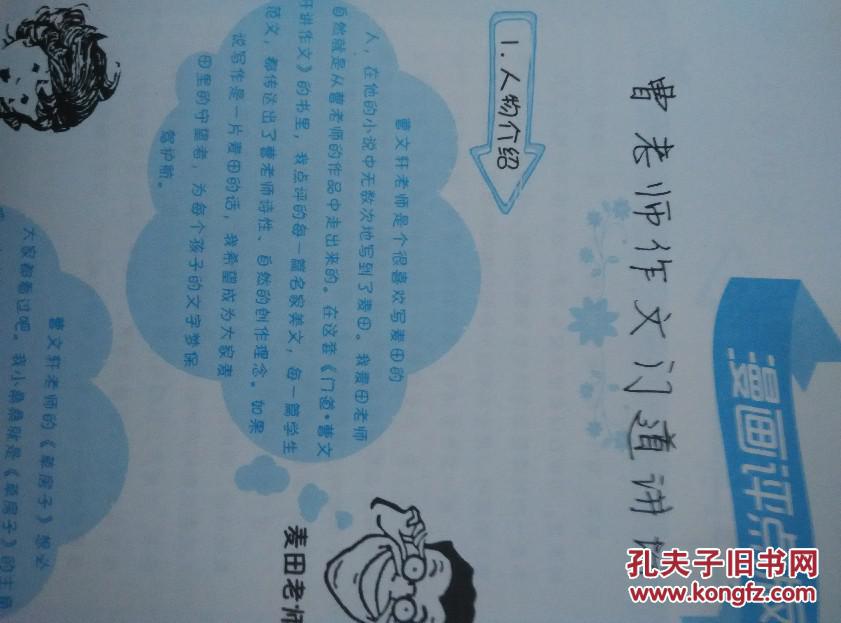 漫画评点
曹老师作文门道讲
1.人物介绍
曹文轩老师是个很喜欢写麦田的
人，在他的小说中无数次地写到了麦田。我麦田老师
自然就是从曹老师的作品中走出来的。在这套《门道·曹文
轩讲作文》的书里，我点评的每一篇名家美文，每一篇学生
范文，都传达出了曹老师诗性、自然的创作理念。如果
说写作是一片麦田的话，我希望成为大家麦
田里的守望者，为每个孩子的文字梦保
驾护航。
麦田老师
曹文轩老师的《草房子》想必
大家都看过吧。我小桑桑就是《草房子》的主
孔夫子旧书网
www.kongfz.com